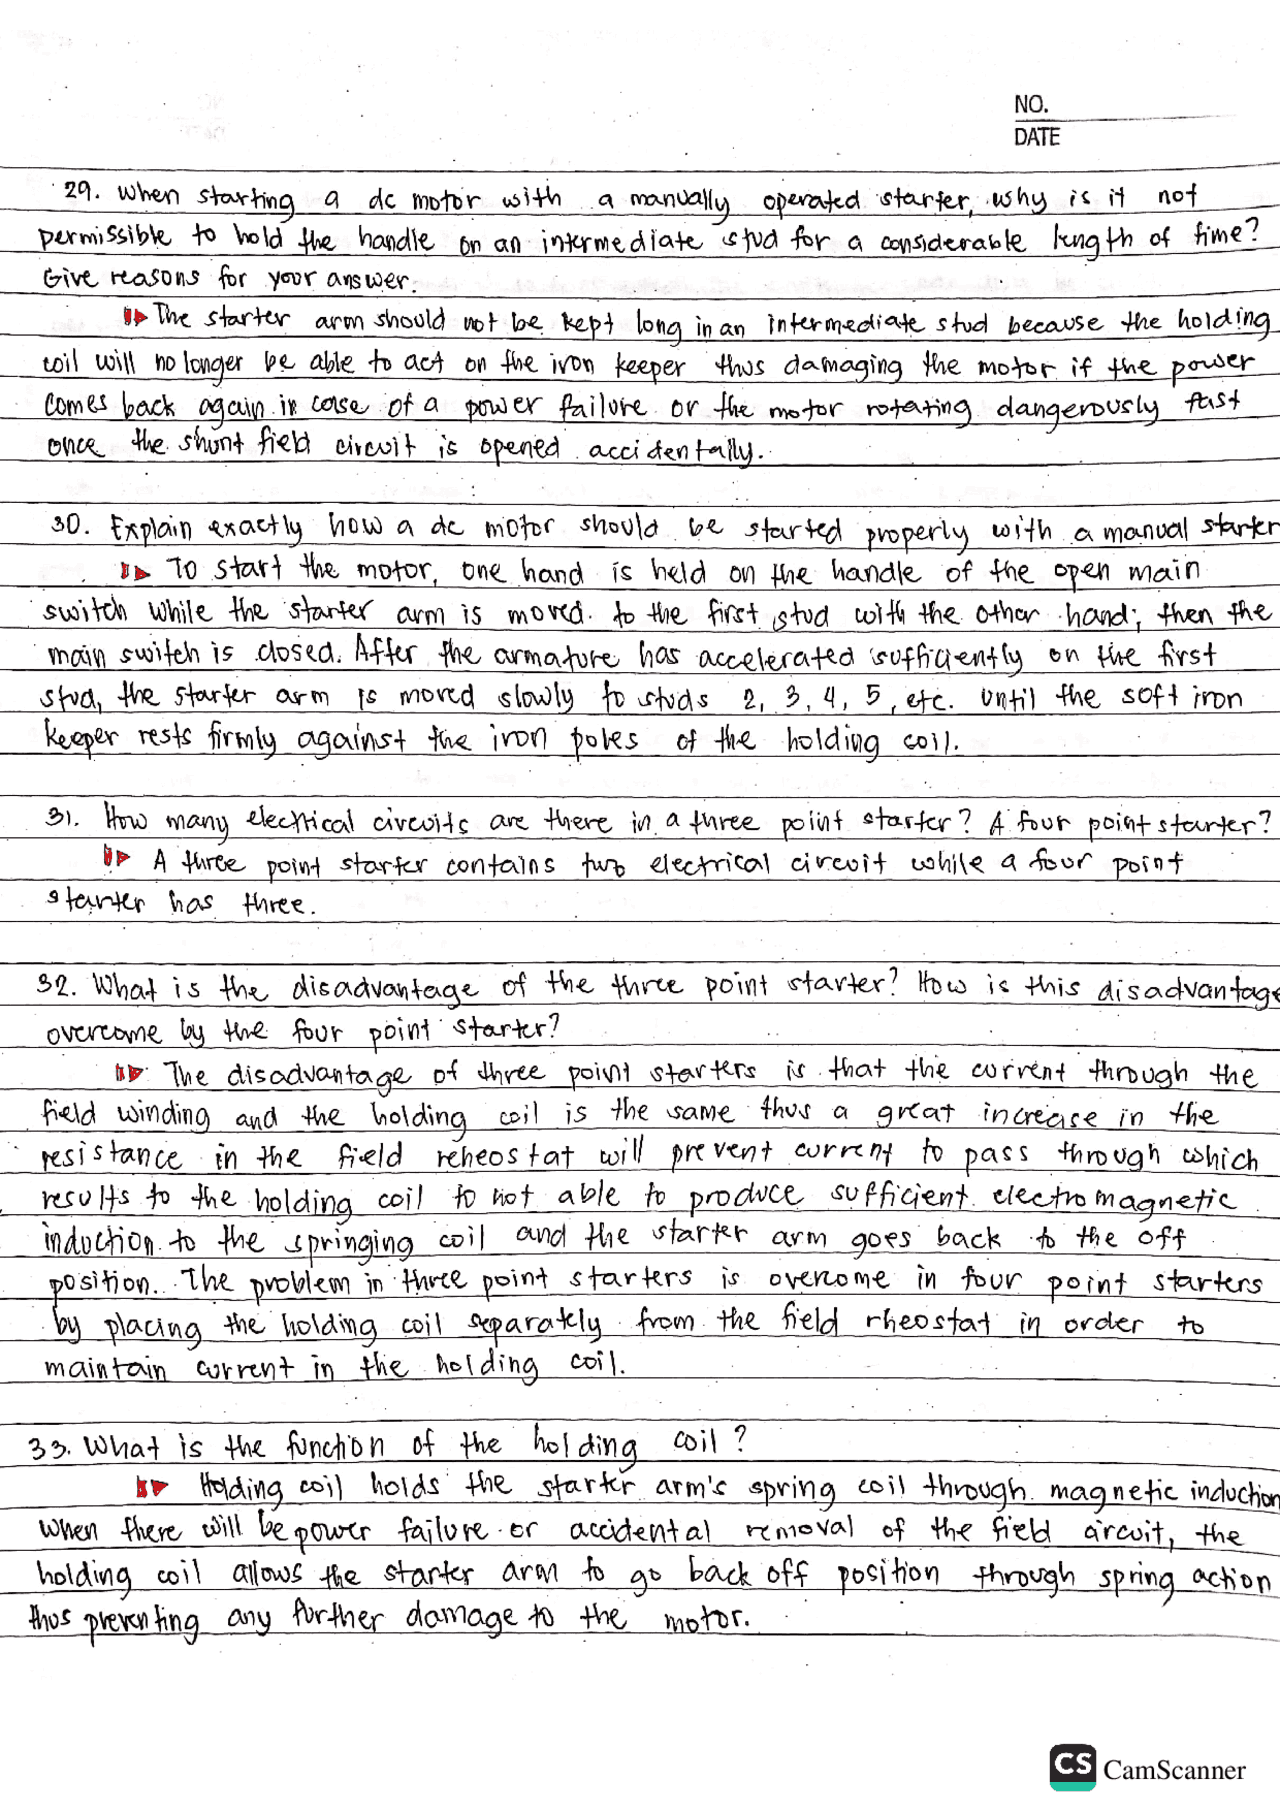 NO.
DATE
29. When starting a dc motor with a manually operated starter, why is it not
permissible to hold the handle on an intermediate stud for a considerable length of time?
Give reasons for your answer.
The starter arm should not be kept long in an intermediate stud because the holding
coil will no longer be able to act on the iron keeper thus damaging the motor if the power
comes back again in case of a power failure or the motor rotating dangerously fast
once the shunt field circuit is opened accidentally.
30. Explain exactly how a dc motor should be started properly with a manual starter
To start the motor, one hand is held on the handle of the open main
switch while the starter arm is moved to the first stud with the other hand; then the
main switch is closed. After the armature has accelerated sufficiently on the first
stud, the starter arm is moved slowly to studs 2, 3, 4, 5, etc. until the soft iron
keeper rests firmly against the iron poles of the holding coil.
31. How many electrical circuits are there in a three point starter? A four point starter?
A three point starter contains two electrical circuit while a four point
starter has three.
32. What is the disadvantage of the three point starter? How is this disadvantage
overcome by the four point starter?
The disadvantage of three point starters is that the current through the
field winding and the holding coil is the same thus a great increase in the
resistance in the field reheostat will prevent current to pass through which
results to the holding coil to not able to produce sufficient electromagnetic
induction to the springing coil and the starter arm goes back to the off
position. The problem in three point starters is overcome in four point starters
by placing the holding coil separately from the field rheostat in order to
maintain current in the holding coil.
33. What is the function of the holding coil?
Holding coil holds the starter arm's spring coil through magnetic induction
When there will be power failure or accidental removal of the field circuit, the
holding coil allows the starter arm to go back off position through spring action
thus preventing any further damage to the motor.
CS CamScanner